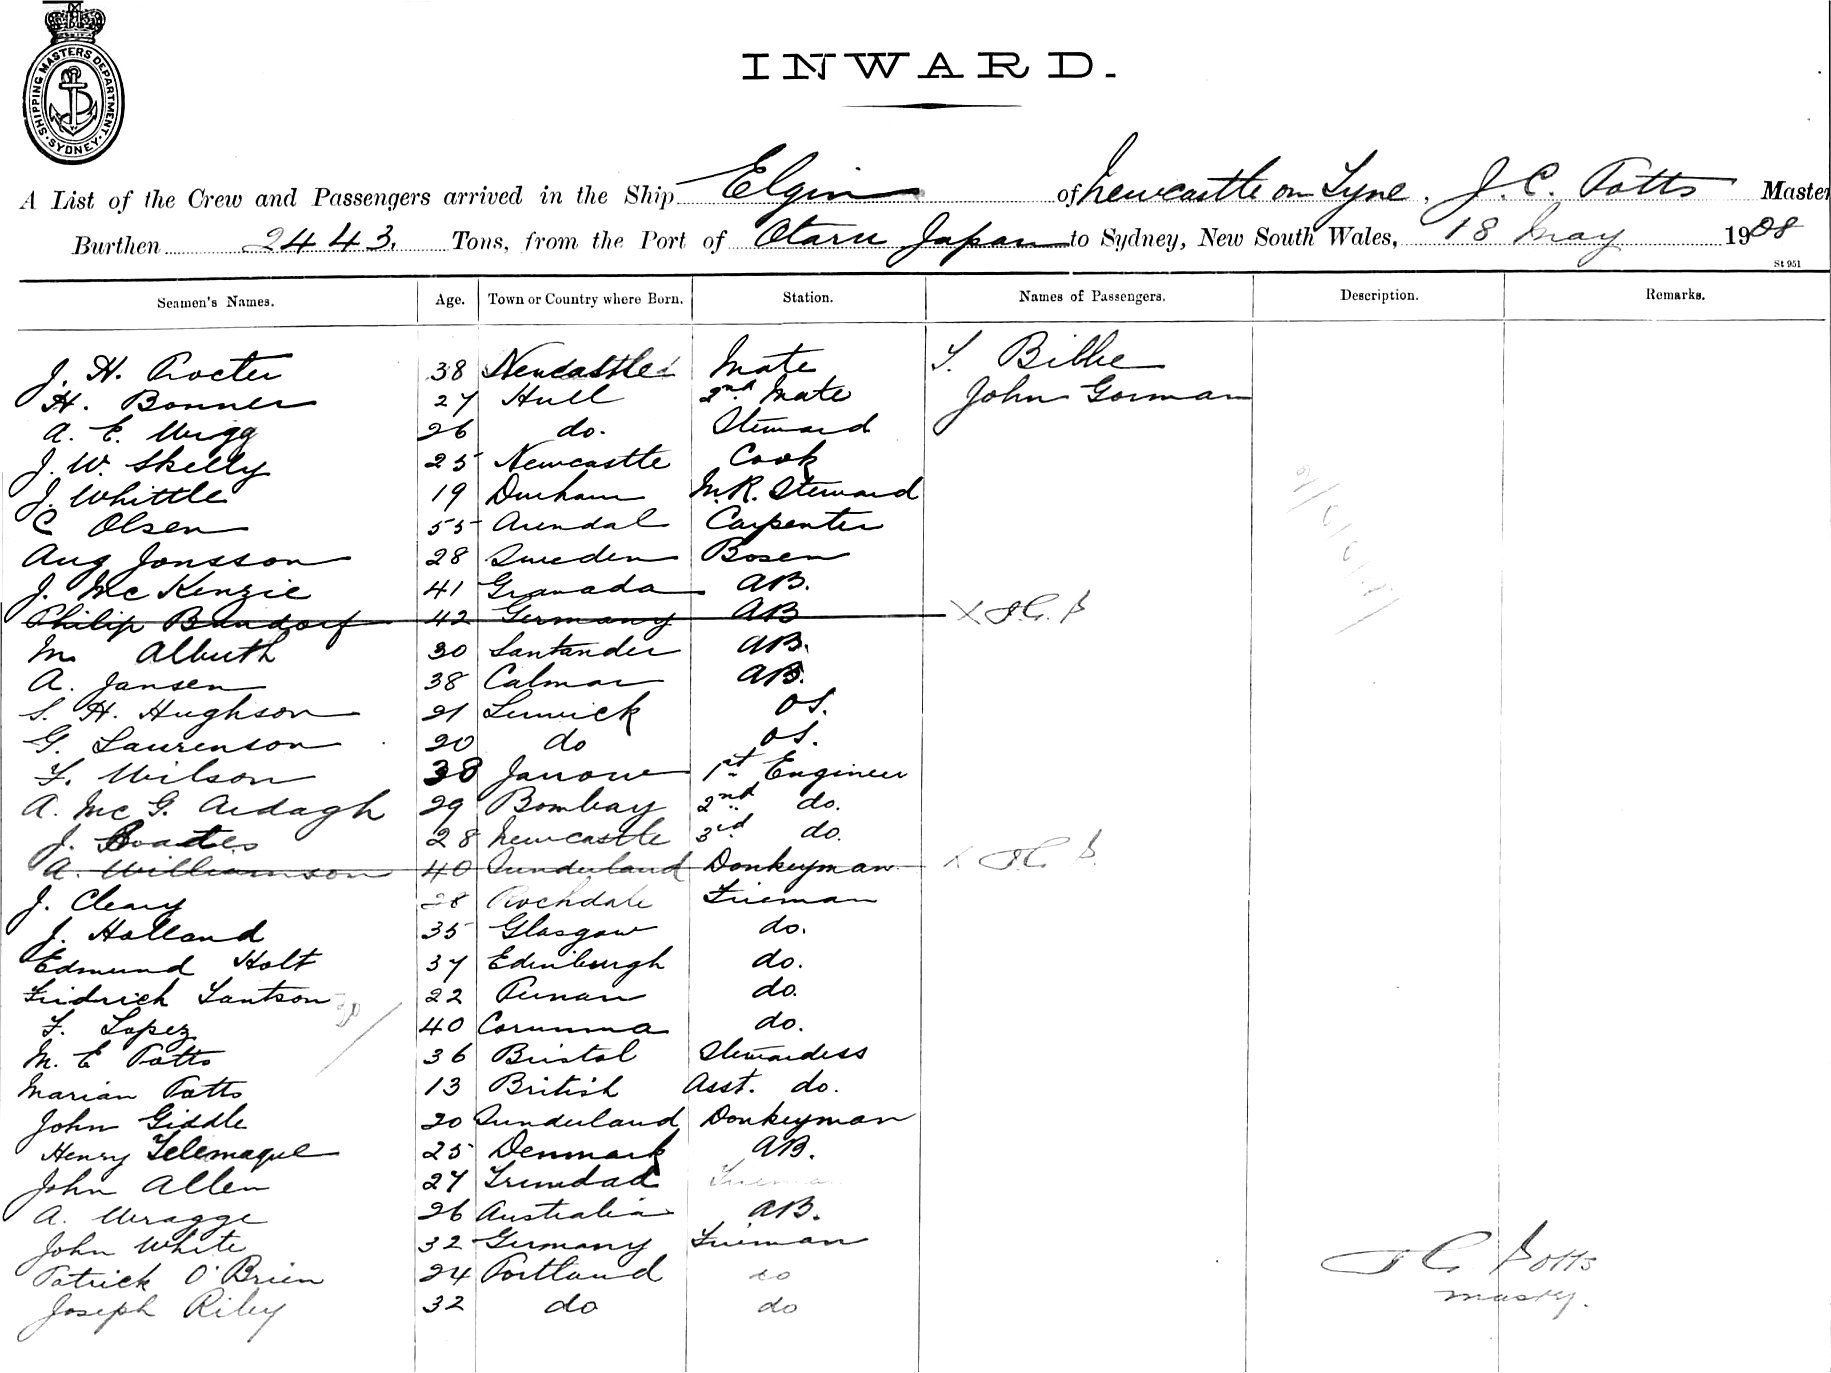 SHIPPING MASTERS DEPARTMENT. SYDNEY.
INWARD.
A List of the Crew and Passengers arrived in the Ship Elgin of Newcastle on Tyne. J. C. Potts Master
Burthen 2443. Tons, from the Port of Otaru Japan to Sydney, New South Wales, 18 May 1908
St 951
Seamen's Names. Age. Town or Country where Born. Station. Names of Passengers. Description. Remarks.
J. H. Procter 38 Newcastle Mate T. Bilbe
H. Bonner 27 Hull 2nd Mate John Gorman
A. E. Wigg 26 do. Steward
J. W. Skelly 25 Newcastle Cook
J. Whittle 19 Durham M.R. Steward
C Olsen 55 Arendal Carpenter
Aug Jonsson 28 Sweden Bosen
J. McKenzie 41 Granada AB.
Philip Bandorf 42 Germany AB X J.C. P
M. Albuth 30 Santander AB.
A. Jansen 38 Calmar AB.
S. H. Hughson 21 Lerwick OS.
G. Laurenson 20 do OS.
F. Wilson 38 Jarrow 1st Engineer
A. Mc G. Ardagh 29 Bombay 2nd do.
J. 28 Newcastle 3rd do.
A. Williamson 40 Sunderland Donkeyman X J C P.
J. Cleary 28 Rochdale Fireman
J. Holland 35 Glasgow do.
Edmund Holt 37 Edinburgh do.
Fridrich Tantson 22 Pernau do.
F. Lopez 40 Corunna do.
M. E Potts 36 Bristol Stewardess
Marian Potts 13 British Asst. do.
John Giddle 20 Sunderland Donkeyman
Henry Telemaque 25 Denmark AB.
John Allen 27 Trinidad Fireman
A. Wragge 26 Australia AB.
John White 32 Germany Fireman
Patrick O'Brien 24 Portland do
Joseph Riley 32 do do
J C Potts
master.